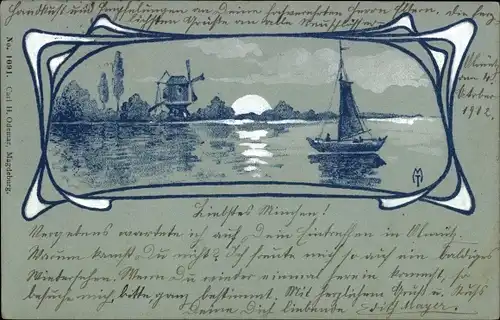 Handkuß und Empfehlungen an Deine hochverehrten Herrn Eltern, die herz-
lichsten Grüße an alle
Olmütz
am 4.
Oktober
1902.
No. 1091. Carl H. Odemar, Magdeburg.
MT
Liebstes Minchen!
Vergebens wartete ich auf Dein Eintreffen in Olmütz.
Warum kamst Du nicht? Ich freute mich so auch ein baldiges
Wiedersehen. Wenn Du wieder einmal herein kommst, so
besuche mich, bitte ganz bestimmt. Mit herzlichem Gruß u. Kuß
Deine Dich liebende Mayer.